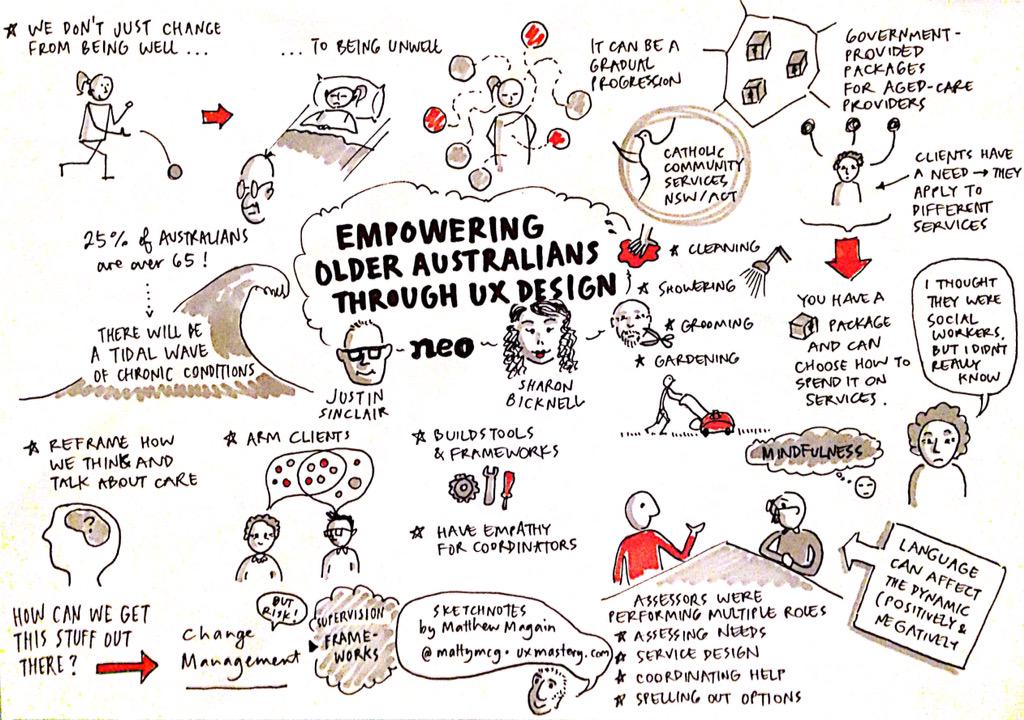 WE DON'T JUST CHANGE
FROM BEING WELL ...
... TO BEING UNWELL
IT CAN BE A
GRADUAL
PROGRESSION
GOVERNMENT-
PROVIDED
PACKAGES
FOR AGED-CARE
PROVIDERS
CATHOLIC
COMMUNITY
SERVICES
NSW/ACT
CLIENTS HAVE
A NEED → THEY
APPLY TO
DIFFERENT
SERVICES
25% of AUSTRALIANS
are over 65!
THERE WILL BE
A TIDAL WAVE
OF CHRONIC CONDITIONS
EMPOWERING
OLDER AUSTRALIANS
THROUGH UX DESIGN
neo
JUSTIN
SINCLAIR
SHARON
BICKNELL
CLEANING
SHOWERING
GROOMING
GARDENING
YOU HAVE A
PACKAGE
AND CAN
CHOOSE HOW TO
SPEND IT ON
SERVICES.
I THOUGHT
THEY WERE
SOCIAL
WORKERS.
BUT I DIDN'T
REALLY
KNOW
REFRAME HOW
WE THINK AND
TALK ABOUT CARE
?
ARM CLIENTS
BUILDS TOOLS
& FRAMEWORKS
HAVE EMPATHY
FOR COORDINATORS
MINDFULNESS
LANGUAGE
CAN AFFECT
THE DYNAMIC
(POSITIVELY &
NEGATIVELY
HOW CAN WE GET
THIS STUFF OUT
THERE?
BUT
RISK!
Change
Management
SUPERVISION
FRAME-
WORKS
SKETCHNOTES
by Matthew Magain
@mattymcg • uxmastery.com
ASSESSORS WERE
PERFORMING MULTIPLE ROLES
ASSESSING NEEDS
SERVICE DESIGN
COORDINATING HELP
SPELLING OUT OPTIONS